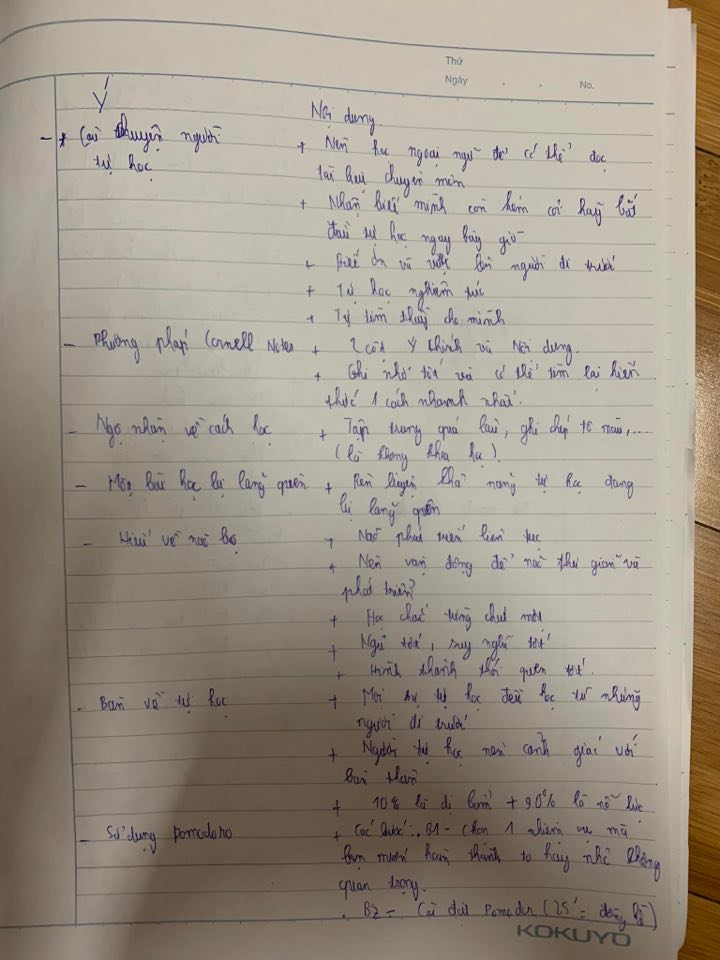 Thứ
Ngày . . No.
Ý
Nội dung
- + Câu chuyện người
tự học
+ Nên học ngoại ngữ để có thể đọc
tài liệu chuyên môn
+ Nhận biết mình còn kém cỏi hãy bắt
đầu tự học ngay bây giờ
+ Biết ơn và vượt lên người đi trước
+ Tự học nghiêm túc
+ Tự tìm thầy cho mình
- Phương pháp Cornell Notes
+ 2 cột Ý chính và Nội dung.
+ Ghi nhớ tốt và có thể tìm lại kiến
thức 1 cách nhanh nhất.
- Ngộ nhận về cách học
+ Tập trung quá lâu, ghi chép tô màu,...
(là không khoa học).
- Một bài học bị lãng quên
+ Rèn luyện khả năng tự học đang
bị lãng quên
- Hiểu về não bộ
+ Não phát triển liên tục
+ Nên vận động để não thư giãn và
phát triển
+ Học chắc từng chút một
+ Ngủ tốt, suy nghĩ tốt
+ Hình thành thói quen tốt.
- Bàn về tự học
+ Mọi sự tự học đều học từ những
người đi trước
+ Người tự học nên cảnh giác với
bản thân
+ 10% là di + 90% là nỗ lực
- Sử dụng pomodoro
+ Các bước: . B1 - Chọn 1 nhiệm vụ mà
bạn muốn hoàn thành to hay nhỏ không
quan trọng.
. B2 - Cài đặt Pomodor (25' = đồng hồ)
KOKUYO